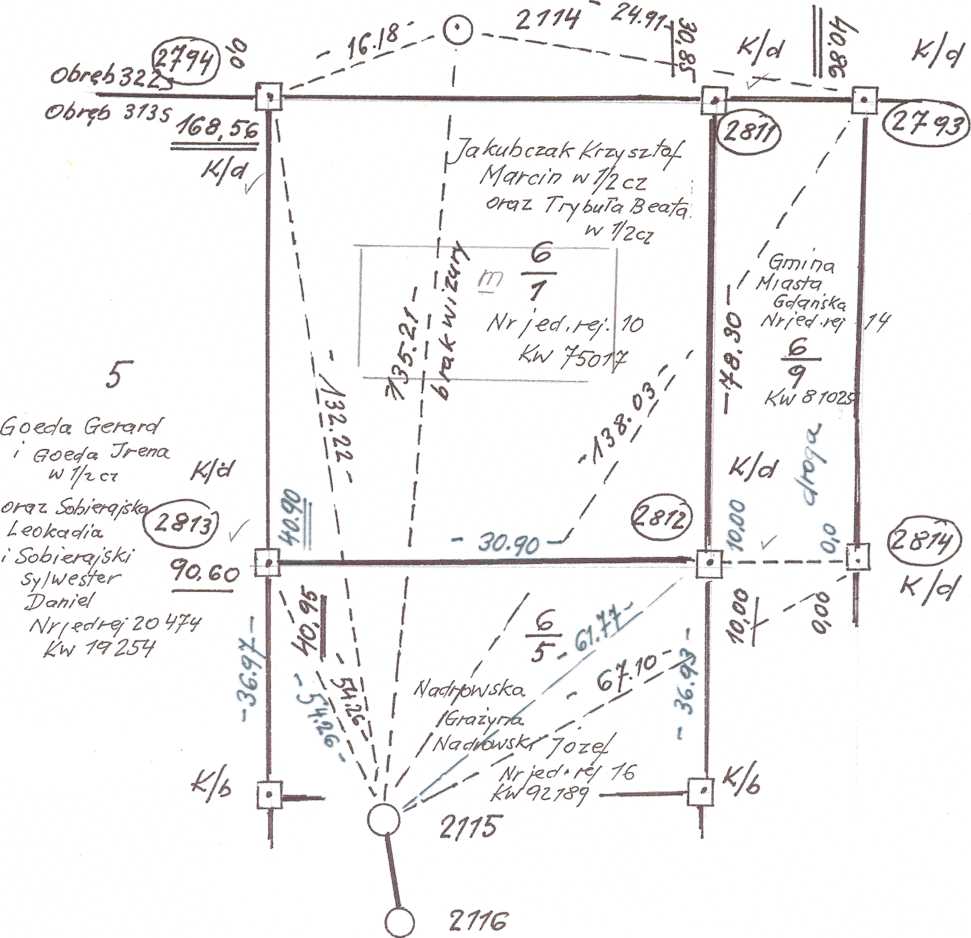 2114
- 24.91-
- 16.18 -
30,85
40,86
K/d
K/d
2794
0,0
Obręb 322s
Obręb 313s
168,56
K/d
2811
2793
Jakubczak Krzysztof
Marcin w 1/2 cz
oraz Trybuła Beata
w 1/2 cz
m
6
1
Nr jed. rej. 10
KW 75017
135.21 -
brak wizury
-78.30-
Gmina
Miasta
Gdańska
Nr jed. rej 14
6
9
KW 81025
droga
5
-132.22-
-138.03-
Goeda Gerard
i Goeda Irena
w 1/2 cz
K/d
oraz Sobierajska
Leokadia
i Sobierajski
Sylwester
Daniel
Nr jed rej 20 474
KW 19254
2813
90,60
40.90
- 30.90 -
2812
K/d
10,00
0,0
2814
K/d
10,00
0,00
40,95
6
5
- 61.77-
- 67.10 -
-36.97-
- 54.26 -
- 54.26 -
- 36.93 -
Nadrowska
Grażyna
Nadrowski Józef
Nr jed. rej 16
KW 92189
K/b
K/b
2115
2116